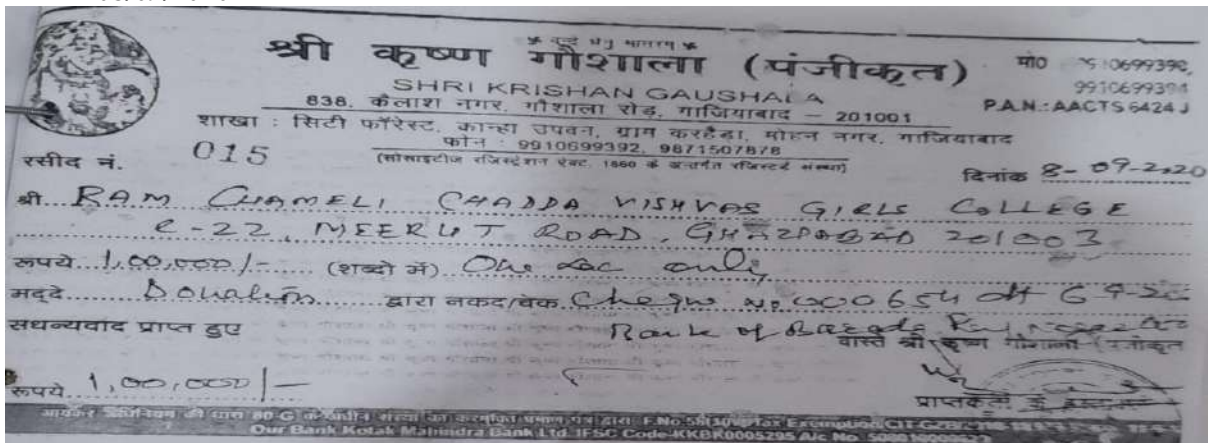 श्री कृष्ण गौशाला (पंजीकृत)
मो० 9910699392,
9910699394
SHRI KRISHAN GAUSHALA
P.A.N.:AACTS6424J
838, कैलाश नगर, गौशाला रोड़, गाजियाबाद – 201001
शाखा : सिटी फॉरेस्ट, कान्हा उपवन, ग्राम करहैडा, मोहन नगर, गाजियाबाद
फोन : 9910699392, 9871507878
(सोसाइटीज रजिस्ट्रेशन एक्ट, 1860 के अन्तर्गत रजिस्टर्ड संस्था)
रसीद नं. 015
दिनांक 8-09-2020
श्री RAM CHAMELI CHADDA VISHVAS GIRLS COLLEGE
MEERUT ROAD, GHAZIABAD 201003
रूपये 1,00,000/- (शब्दो में) One Lac only
मद्दे Donation द्वारा नकद/चेक Cheque No 000654 dt
सधन्यवाद प्राप्त हुए Bank of Baroda
वास्ते श्री कृष्ण गौशाला (पंजीकृत
रूपये 1,00,000/-
प्राप्तकर्ता के हस्ताक्षर
आयकर अधिनियम की धारा 80 G के अधीन संस्था का करमुक्ति प्रमाण पत्र द्वारा Tax Exemption
Our Bank Kotak Mahindra Bank Ltd. IFSC Code-KKBK0005295 A/c No.